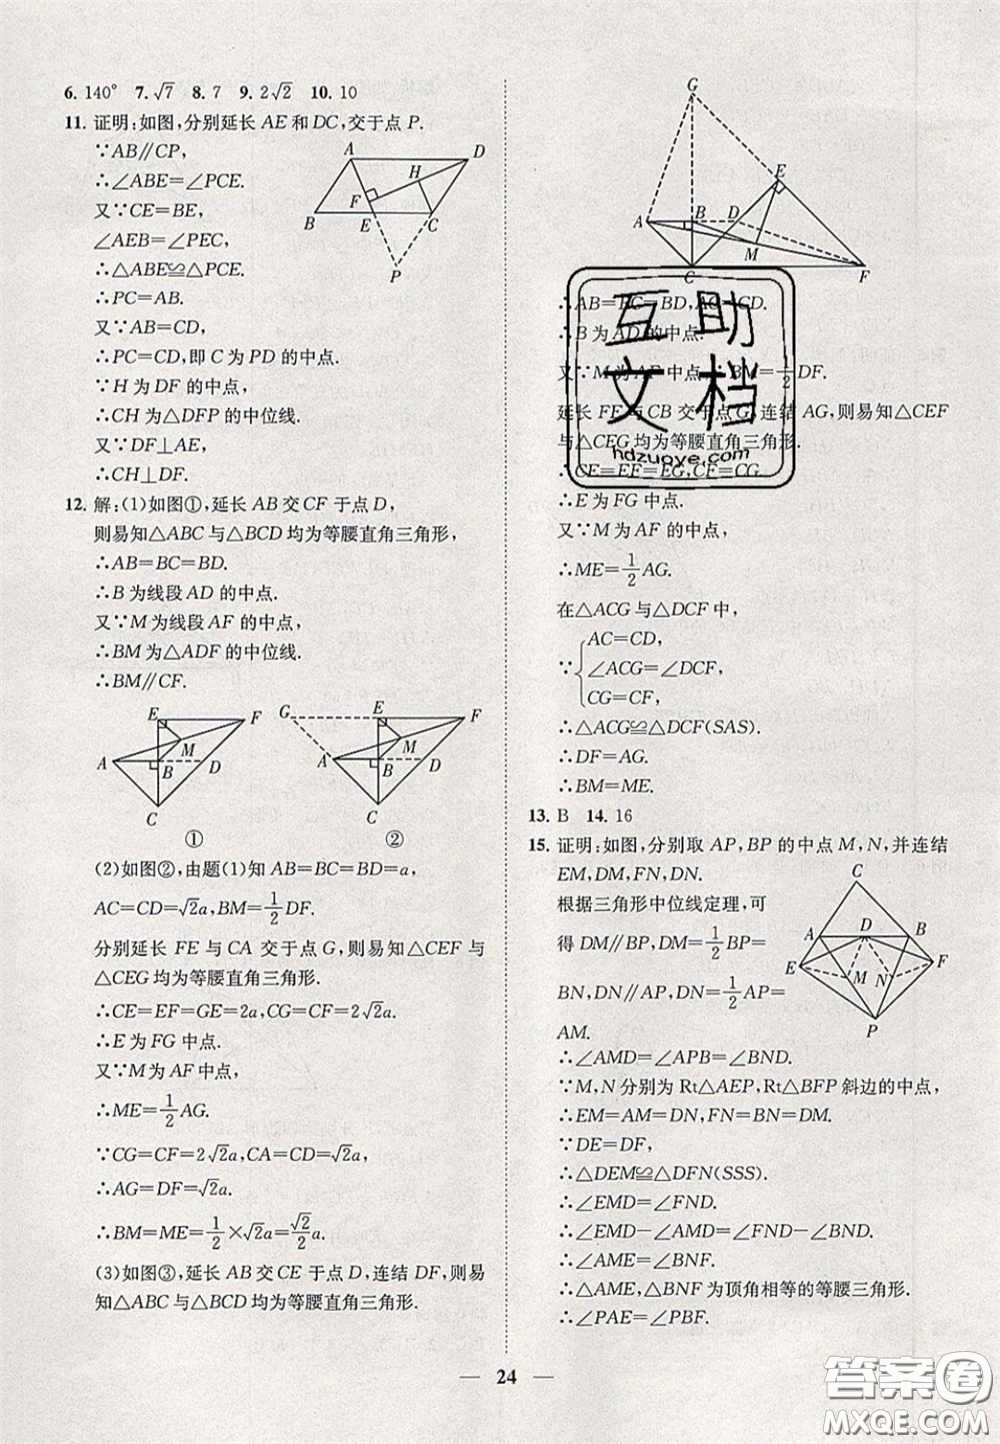 6. 140° 7. √7 8. 7 9. 2√2 10. 10
11. 证明:如图,分别延长 AE 和 DC,交于点 P.
∵AB∥CP,
∴∠ABE=∠PCE.
又∵CE=BE,
∠AEB=∠PEC,
∴△ABE≌△PCE.
∴PC=AB.
又∵AB=CD,
∴PC=CD,即 C 为 PD 的中点,
∵H 为 DF 的中点,
∴CH 为△DFP 的中位线.
又∵DF⊥AE,
∴CH⊥DF.
A D H F B E C P
12. 解:(1)如图①,延长 AB 交 CF 于点 D,
则易知△ABC 与△BCD 均为等腰直角三角形,
∴AB=BC=BD.
∴B 为线段 AD 的中点.
又∵M 为线段 AF 的中点,
∴BM 为△ADF 的中位线.
∴BM∥CF.
E F M A B D C ①
G E F M A B D C ②
(2)如图②,由题(1)知 AB=BC=BD=a,
AC=CD=√2a,BM=1/2DF.
分别延长 FE 与 CA 交于点 G,则易知△CEF 与
△CEG 均为等腰直角三角形.
∴CE=EF=GE=2a,CG=CF=2√2a.
∴E 为 FG 中点.
又∵M 为 AF 中点,
∴ME=1/2AG.
∵CG=CF=2√2a,CA=CD=√2a,
∴AG=DF=√2a.
∴BM=ME=1/2×√2a=√2/2a.
(3)如图③,延长 AB 交 CE 于点 D,连结 DF,则易
知△ABC 与△BCD 均为等腰直角三角形.
G E A B D M C F
∴AB=BC=BD,AC=CD.
∴B 为 AD 的中点.
又∵M 为 AF 的中点,∴BM=1/2DF.
延长 FE 与 CB 交于点 G,连结 AG,则易知△CEF
与△CEG 均为等腰直角三角形.
∴CE=EF=EG,CF=CG.
∴E 为 FG 中点.
又∵M 为 AF 的中点,
∴ME=1/2AG.
在△ACG 与△DCF 中,
AC=CD,
∵ ∠ACG=∠DCF,
CG=CF,
∴△ACG≌△DCF(SAS).
∴DF=AG.
∴BM=ME.
13. B 14. 16
15. 证明:如图,分别取 AP,BP 的中点 M,N,并连结
EM,DM,FN,DN.
根据三角形中位线定理,可
得 DM∥BP,DM=1/2BP=
BN,DN∥AP,DN=1/2AP=
AM.
C A D B E F M N P
∴∠AMD=∠APB=∠BND.
∵M,N 分别为 Rt△AEP,Rt△BFP 斜边的中点,
∴EM=AM=DN,FN=BN=DM.
∵DE=DF,
∴△DEM≌△DFN(SSS).
∴∠EMD=∠FND.
∴∠EMD-∠AMD=∠FND-∠BND.
∴∠AME=∠BNF.
∴△AME,△BNF 为顶角相等的等腰三角形.
∴∠PAE=∠PBF.
24
互助
文档
hdzuoye.com
答案圈
MXQE.COM